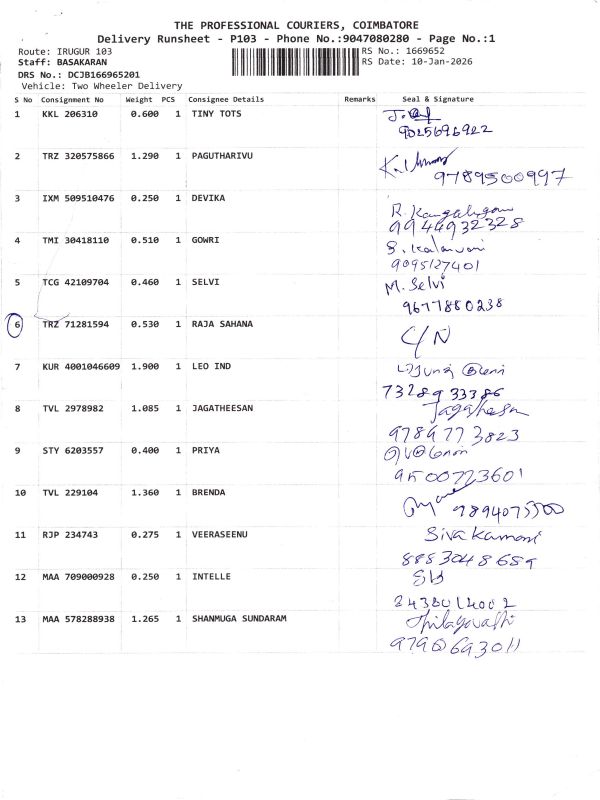 THE PROFESSIONAL COURIERS, COIMBATORE
Delivery Runsheet - P103 - Phone No.:9047080280 - Page No.:1
Route: IRUGUR 103 RS No.: 1669652
Staff: BASAKARAN RS Date: 10-Jan-2026
DRS No.: DCJB166965201
Vehicle: Two Wheeler Delivery
S No Consignment No Weight PCS Consignee Details Remarks Seal & Signature
1 KKL 206310 0.600 1 TINY TOTS
9025696922
2 TRZ 320575866 1.290 1 PAGUTHARIVU
9789500997
3 IXM 509510476 0.250 1 DEVIKA R.
9944932328
4 TMI 30418110 0.510 1 GOWRI S. Kalaivani
9095127401
5 TCG 42109704 0.460 1 SELVI M. Selvi
9677880238
6 TRZ 71281594 0.530 1 RAJA SAHANA C/N
7 KUR 4001046609 1.900 1 LEO IND
73289 33386
8 TVL 2978982 1.085 1 JAGATHEESAN Jagatheesan
9789773823
9 STY 6203557 0.400 1 PRIYA
9500723601
10 TVL 229104 1.360 1 BRENDA
9894075500
11 RJP 234743 0.275 1 VEERASEENU Siva Kamani
8883048689
12 MAA 709000928 0.250 1 INTELLE
13 MAA 578288938 1.265 1 SHANMUGA SUNDARAM Thilagavathi